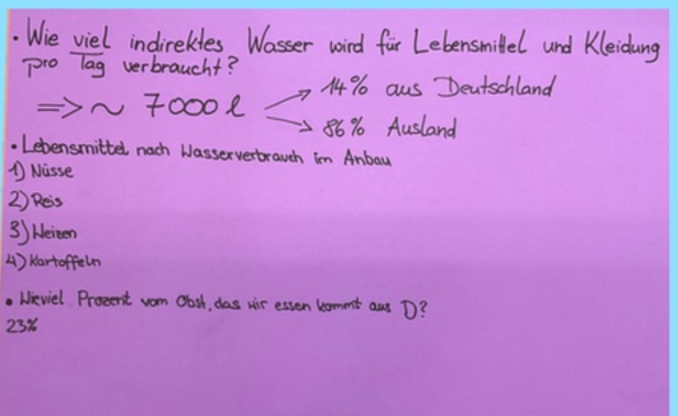 • Wie viel indirektes Wasser wird für Lebensmittel und Kleidung
pro Tag verbraucht?
=> ~ 7000 l → 14% aus Deutschland
→ 86% Ausland
• Lebensmittel nach Wasserverbrauch im Anbau
1) Nüsse
2) Reis
3) Weizen
4) Kartoffeln
• Wieviel Prozent vom Obst, das wir essen kommt aus D?
23%